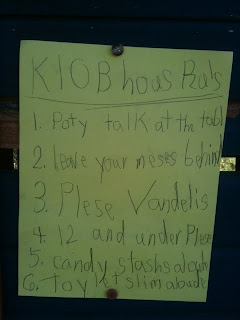 KYOB hous Ruls
1. Poty talk at the tabl
2. leave your meses behind
3. Plese Vandelis
4. 12 and under Plese
5. candy stashs alowd
6. Toylet slim